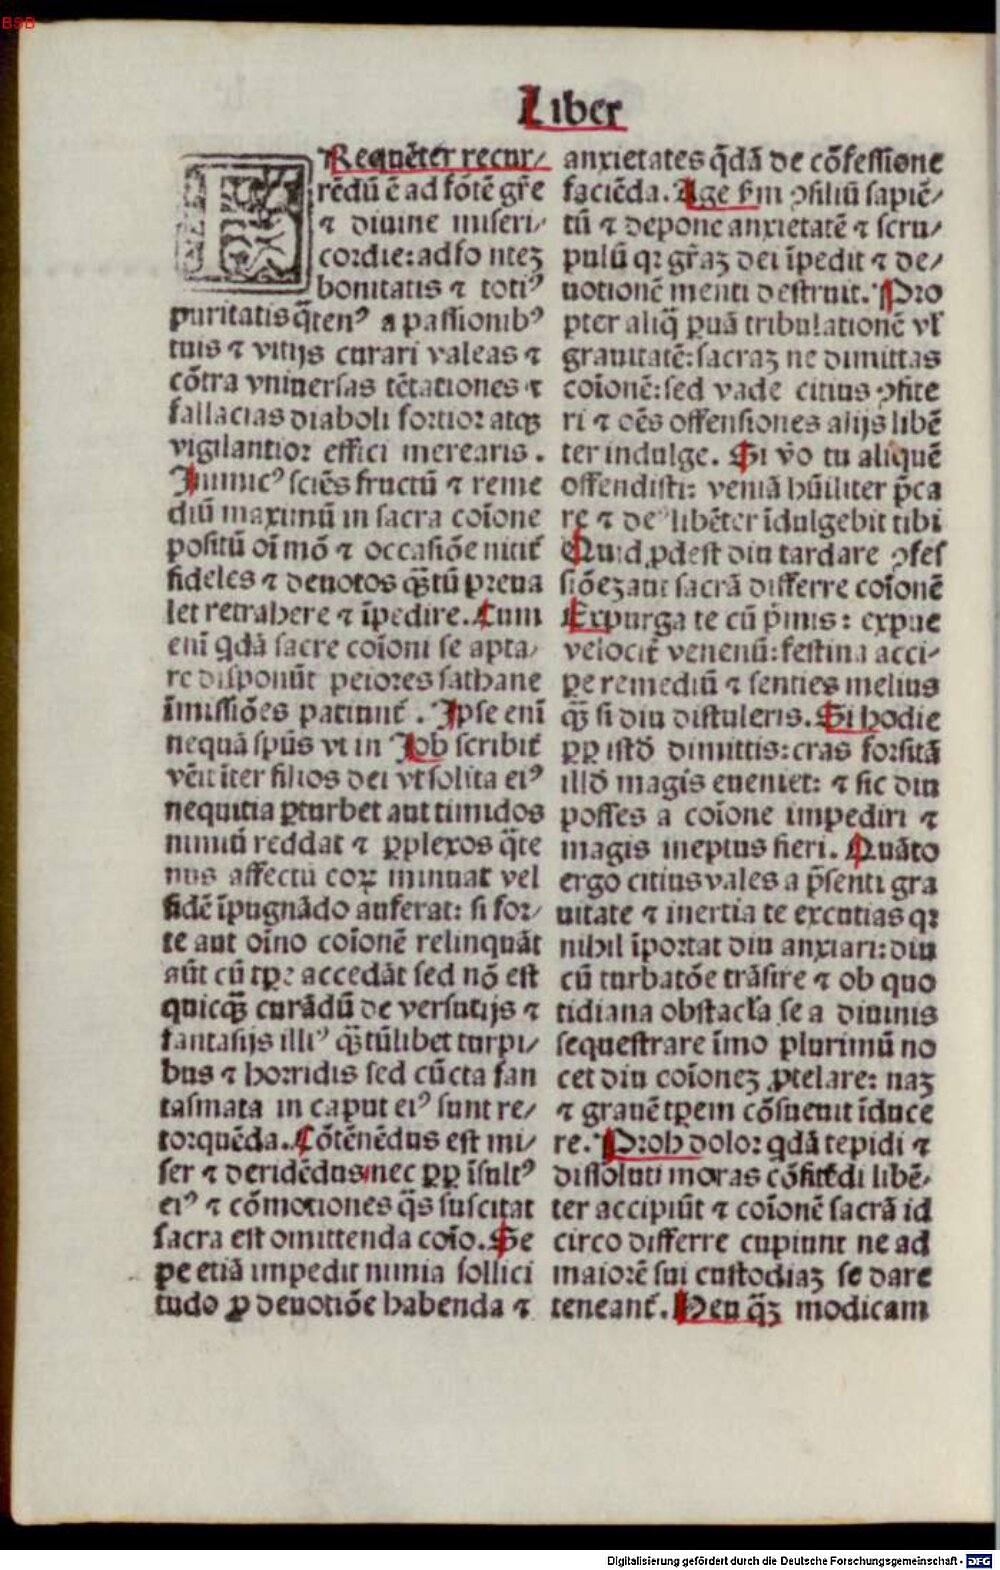 BSB
Liber
FRequēter recur/
rēdū ē ad fōtē gr̄e
⁊ diuine miseri/
cordie: ad fo nteʒ
bonitatis ⁊ totiꝰ
puritatis q̄tenꝰ a passionibꝰ
tuis ⁊ vitijs curari valeas ⁊
cōtra vniuersas tētationes ⁊
fallacias diaboli fortior atqꝫ
vigilantior effici merearis.
Inimicꝰ sciēs fructū ⁊ reme
diū maximū in sacra coīone
positū oī mō ⁊ occasiōe nitit᷑
fideles ⁊ deuotos qꝫ̄tū preua
let retrahere ⁊ īpedire. Cum
enī qdā sacre coīoni se apta/
re disponūt peiores sathane
īmissiōes patiunt᷑. Ipse enī
nequā spūs vt in Job scribit᷑
vēit īter filios dei vt solita eiꝰ
nequitia ꝑturbet aut timidos
nimiū reddat ⁊ ꝑplexos q̄te
nus affectū coꝝ minuat vel
fidē īpugnādo auferat: si for/
te aut oīno coīonē relinquāt
aūt cū tꝑe accedāt sed nō est
quicqꝫ̄ curādū de versutijs ⁊
fantasijs illiꝰ qꝫ̄tūlibet turpi/
bus ⁊ horridis sed cūcta fan
tasmata in caput eiꝰ sunt re/
torquēda. Cōtēnēdus est mi/
ser ⁊ deridēdus nec ꝓpꝑ īsultꝰ
eiꝰ ⁊ cōmotiones q̄s suscitat
sacra est omittenda coīo. Se
pe etiā impedit nimia sollici
tudo ꝓ deuotiōe habenda ⁊
anxietates q̄dā de cōfessione
faciēda. Age s̄m ꝯsiliū sapiē/
tū ⁊ depone anxietatē ⁊ scru/
pulū qꝛ gr̄aʒ dei īpedit ⁊ de/
uotionē menti destruit. Pro
pter aliq̄ ꝑuā tribulationē vl̄
grauitatē: sacraʒ ne dimittas
coīonē: sed vade citius ꝯfite
ri ⁊ oēs offensiones alijs libē
ter indulge. Si v̄o tu aliquē
offendisti: veniā hūiliter p̄ca
re ⁊ deꝰ libēter īdulgebit tibi
Quid ꝓdest diu tardare ꝯfes
siōeʒ aut sacrā differre coīonē
Expurga te cū p̄mis: expue
velocit᷑ venenū: festina acci/
pe remediū ⁊ senties melius
qꝫ̄ si diu distuleris. Si hodie
ꝓpꝑ istd̄ dimittis: cras forsitā
illd̄ magis eueniet: ⁊ sic diu
posses a coīone impediri ⁊
magis ineptus fieri. Quāto
ergo citius vales a p̄senti gra
uitate ⁊ inertia te excutias qꝛ
nihil īportat diu anxiari: diu
cū turbatōe trāsire ⁊ ob quo
tidiana obstacl̄a se a diuinis
sequestrare īmo plurimū no
cet diu coīoneʒ ꝓtelare: naʒ
⁊ grauē tꝑem cōsueuit īduce
re. Proh dolor qdā tepidi ⁊
dissoluti moras cōfitēdi libē/
ter accipiūt ⁊ coīonē sacrā id
circo differre cupiunt ne ad
maiorē sui custodiaʒ se dare
teneant᷑. Heu qꝫ̄ modicam
Digitalisierung gefördert durch die Deutsche Forschungsgemeinschaft - DFG